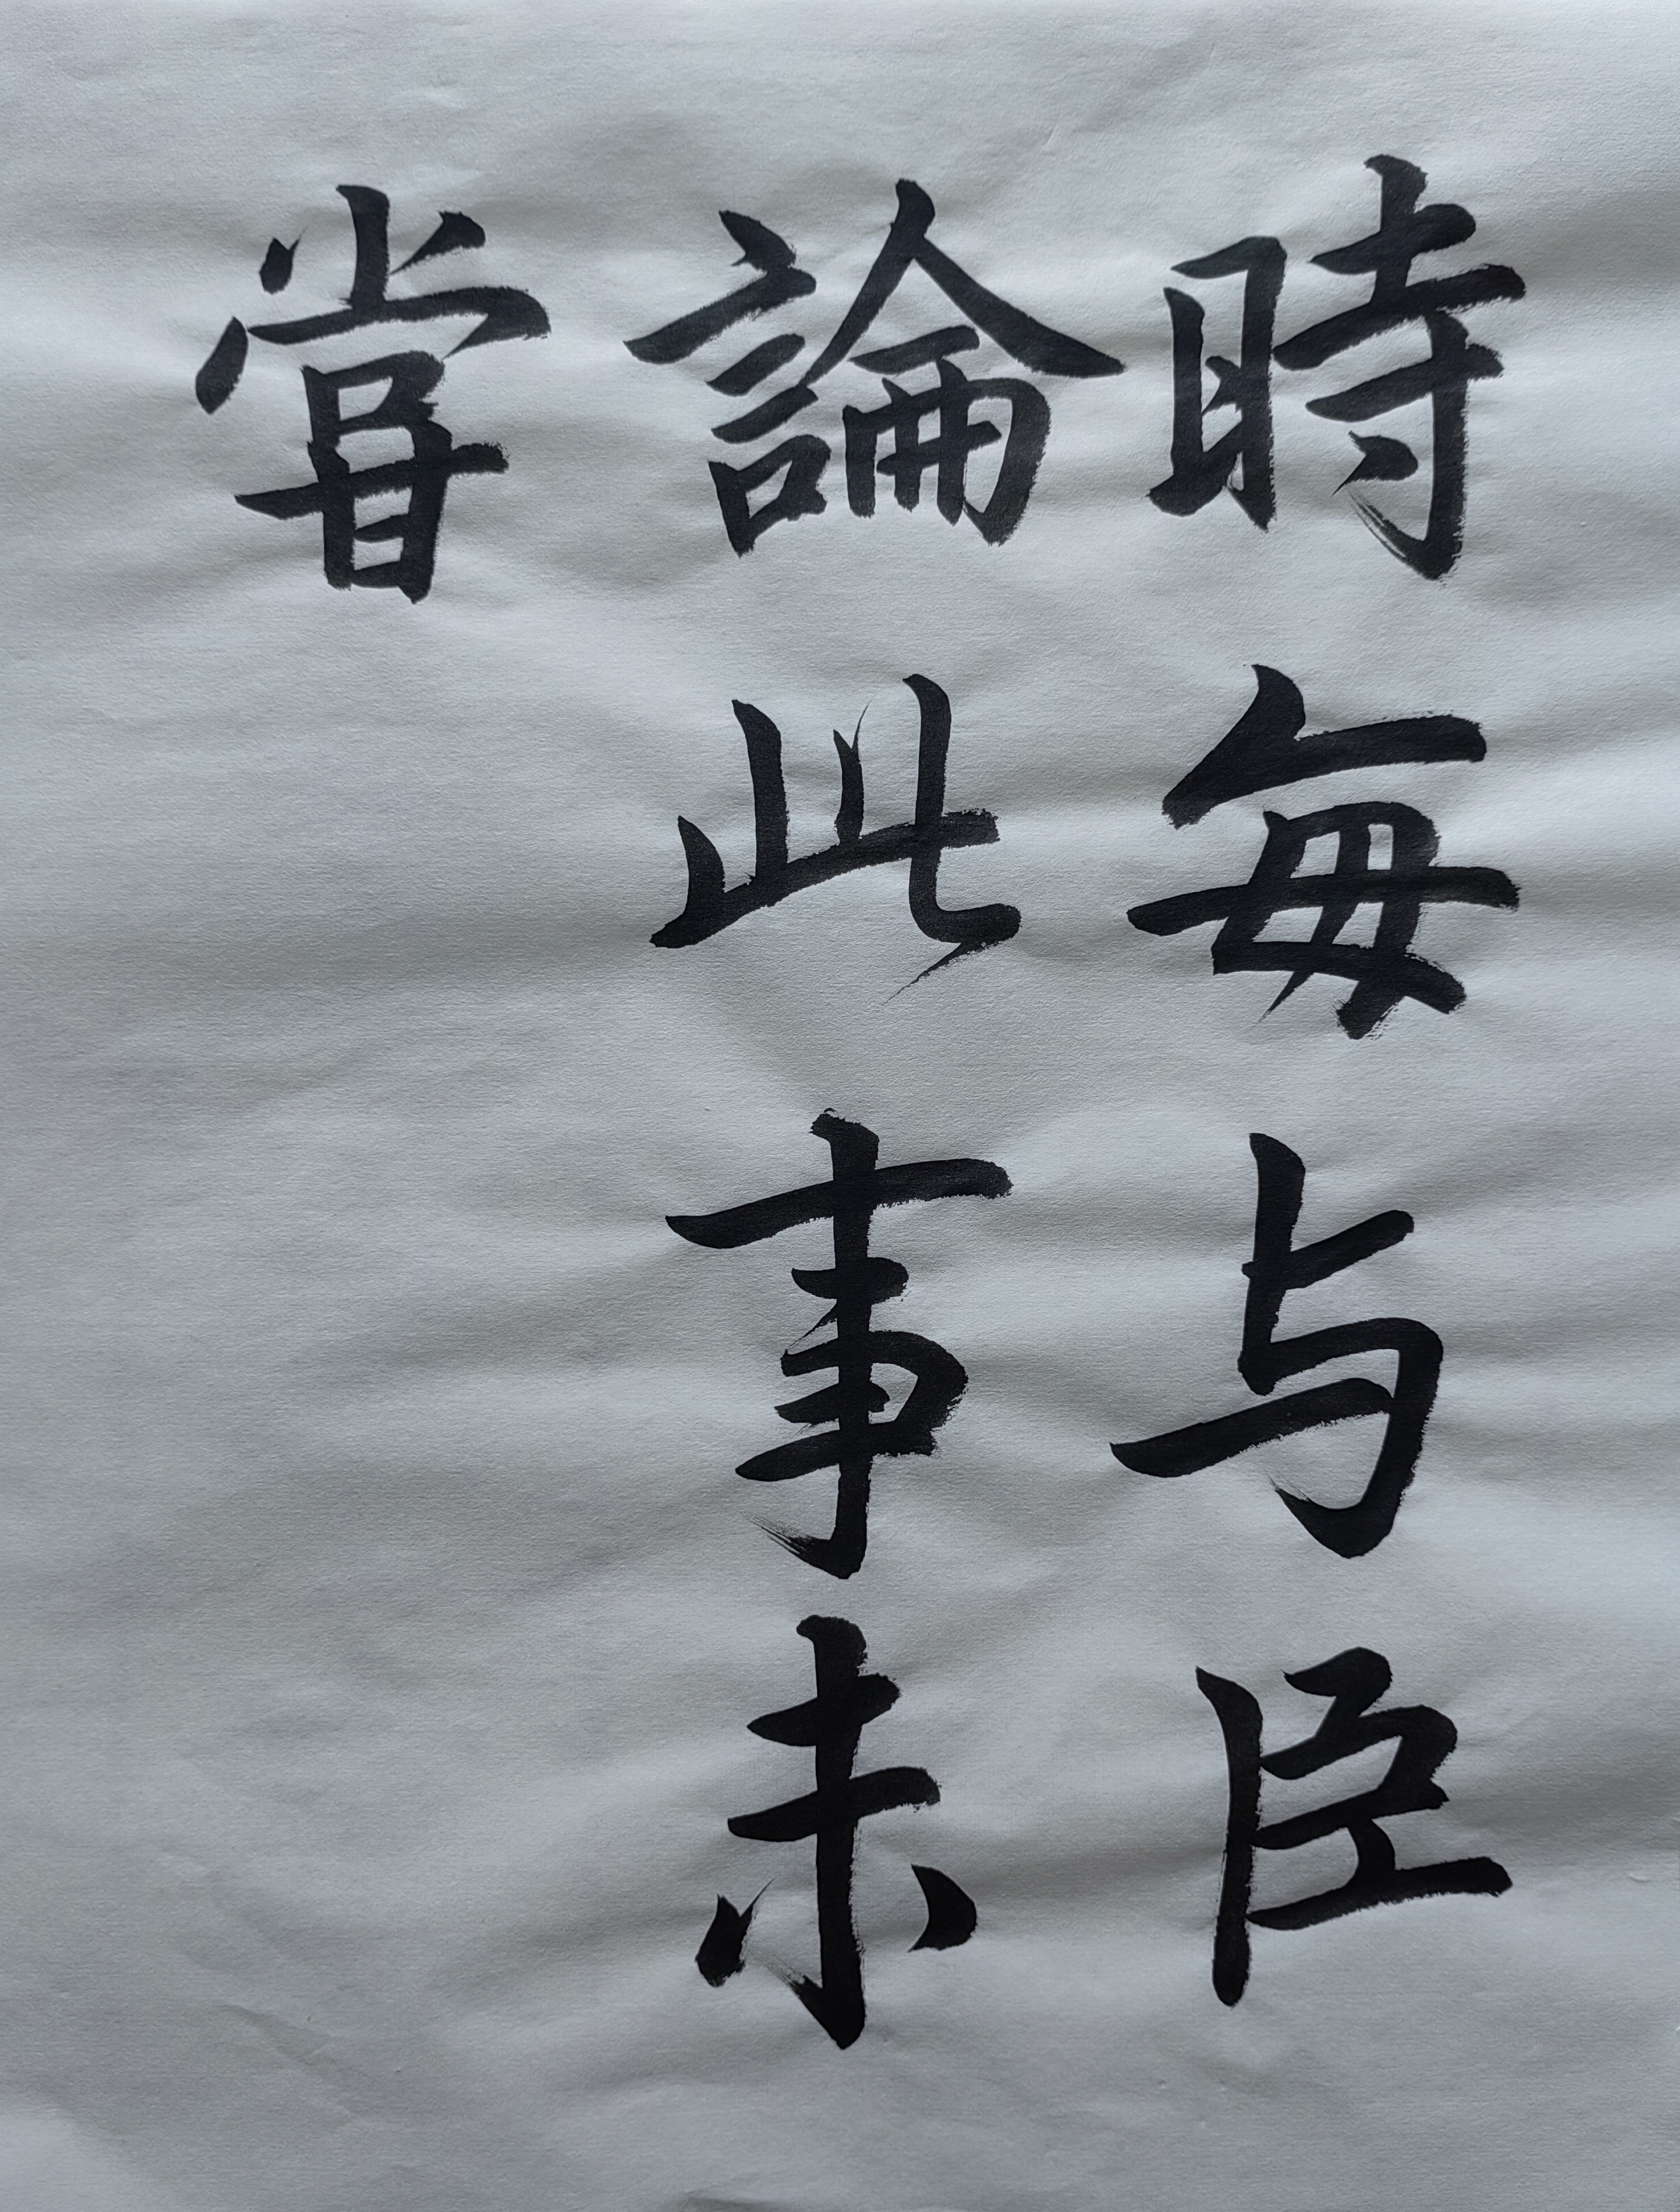 時每与臣
論此事未
甞